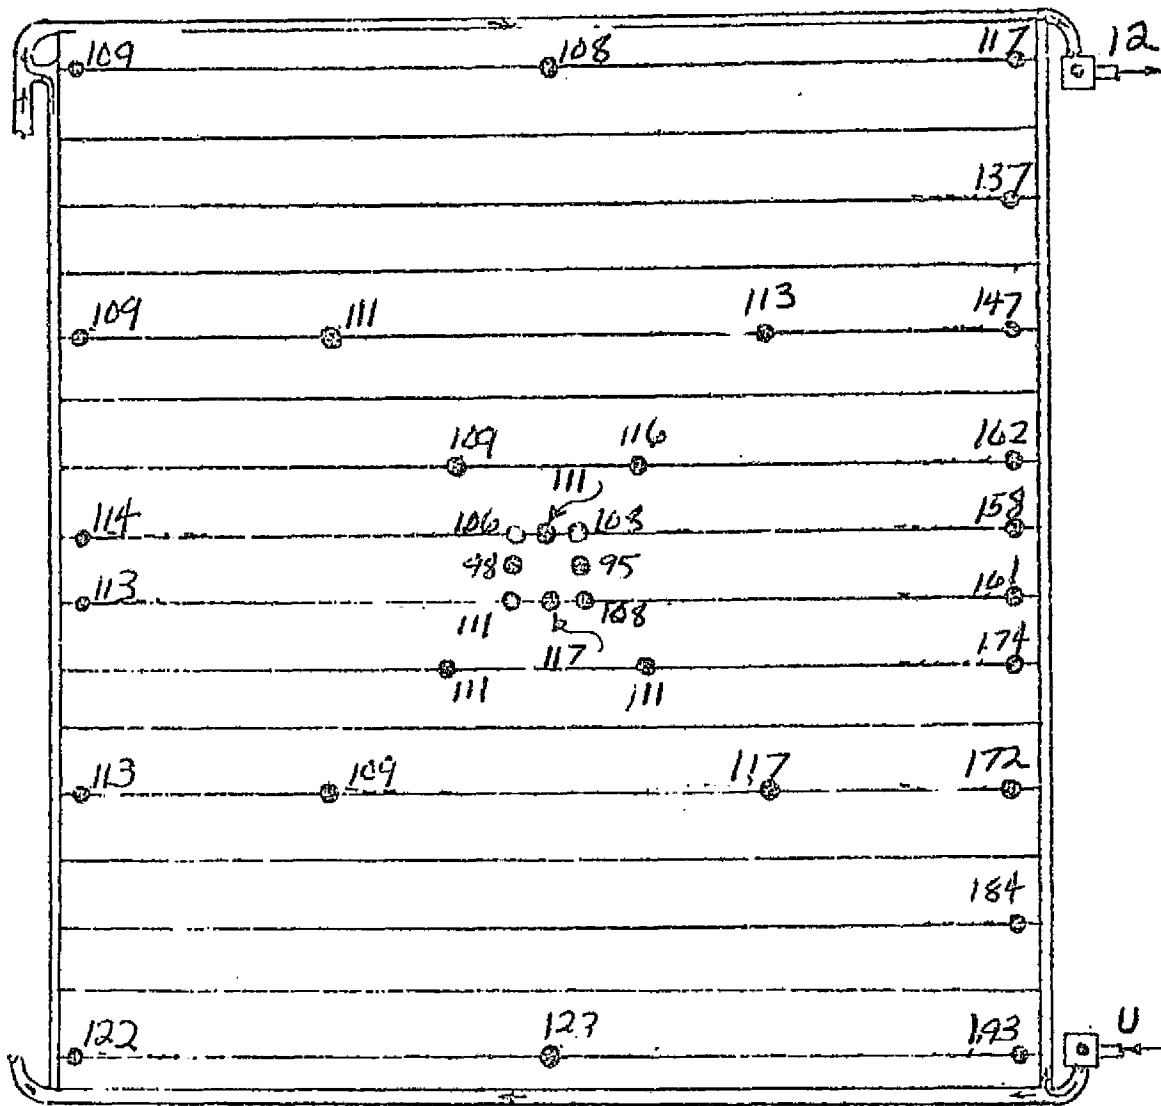 109 108 117 12
137
109 111 113 147
109 116 162
111
114 106 108 158
98 95
113 161
111 108
117 174
111 111
113 109 117 172
184
122 123 193 U